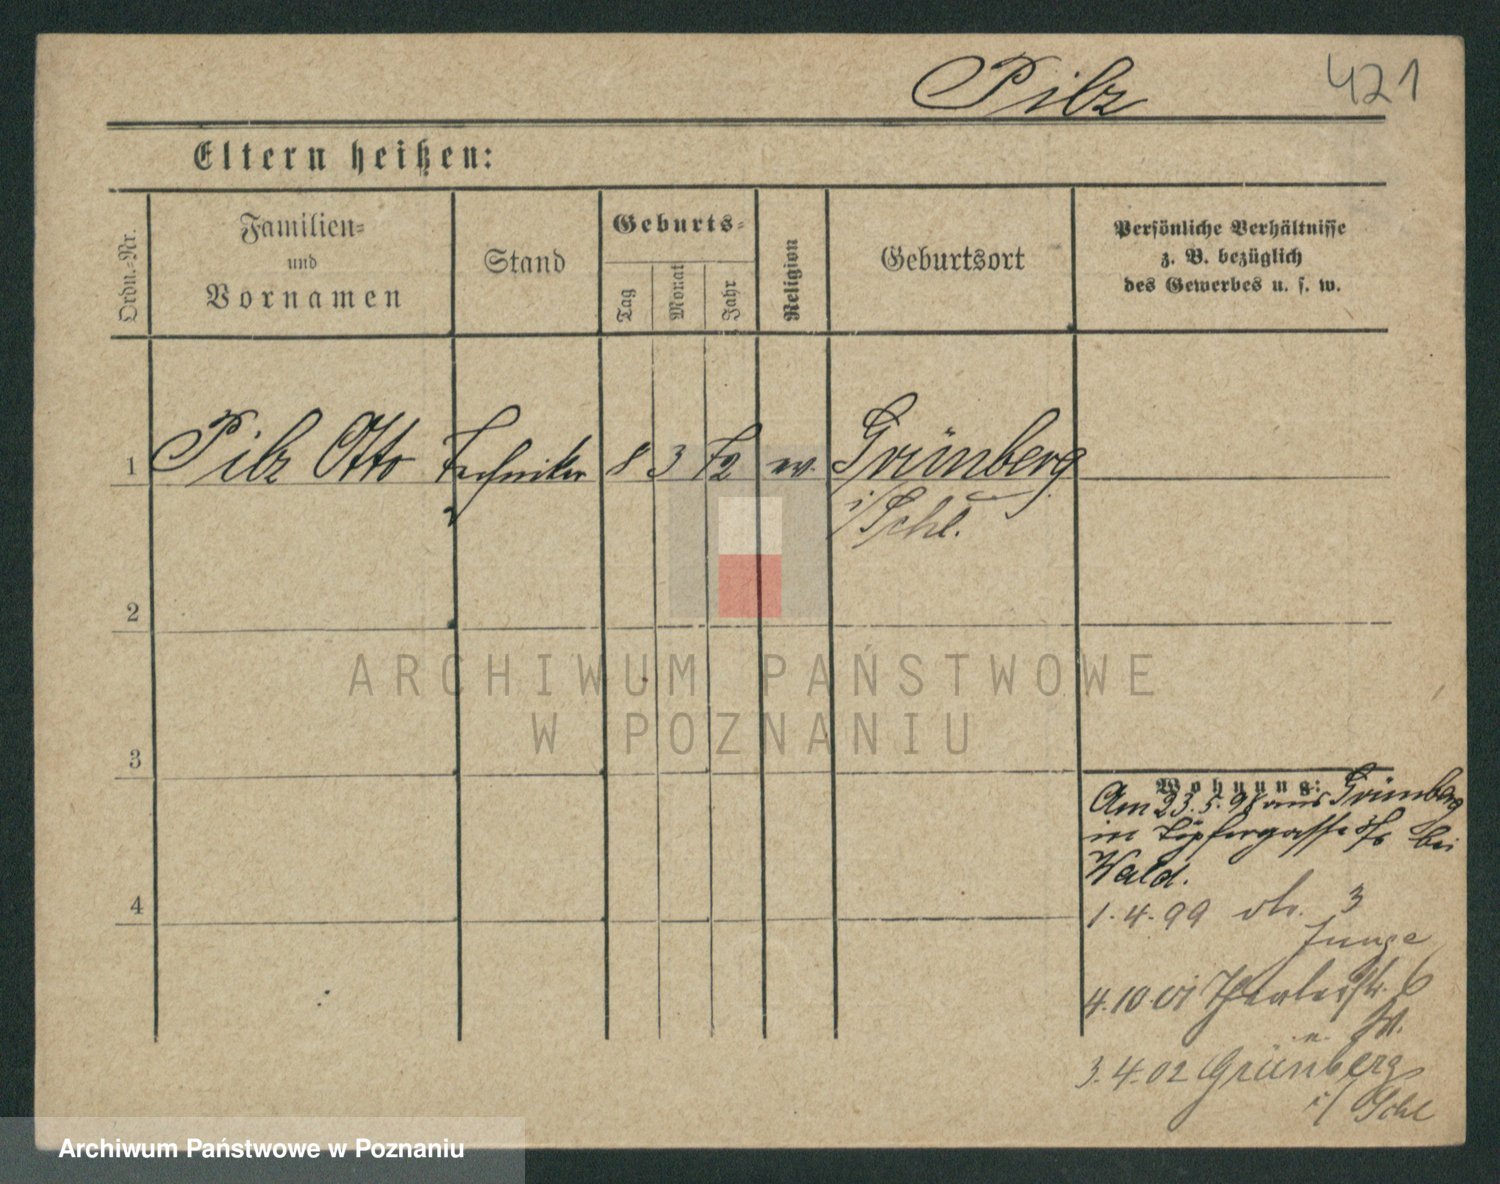 Pilz 421
Eltern heißen:
Ordn.-Nr.
Familien-
und
Vornamen
Stand
Geburts-
Tag
Monat
Jahr
Religion
Geburtsort
Persönliche Verhältnisse
z. B. bezüglich
des Gewerbes u. s. w.
1 Pilz Otto Techniker 8 3 72 ev. Grünberg
i/Schl.
2
3
4
Wohnung:
Am 23.5.98 aus Grünberg
in Töpfergasse bei
Wald.
1.4.99 3
Junge
4.10.01 6
3.4.02 Grünberg
i/Schl
ARCHIWUM PAŃSTWOWE
W POZNANIU
Archiwum Państwowe w Poznaniu